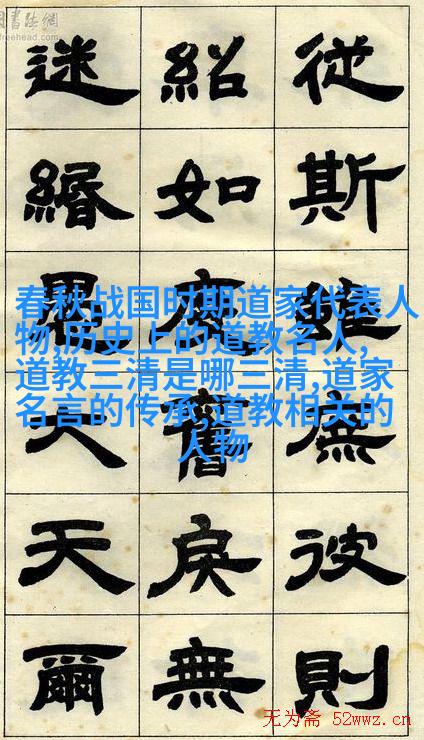 书法網
freehead.com
從斯雖庶彼則
紹如舊戾無
迷緡大天爾
春秋战国时期道家代表人
物,历史上的道教名人,
道教三清是哪三清,道家
名言的传承,道教相关的
人物
无为斋 52wwz.cn